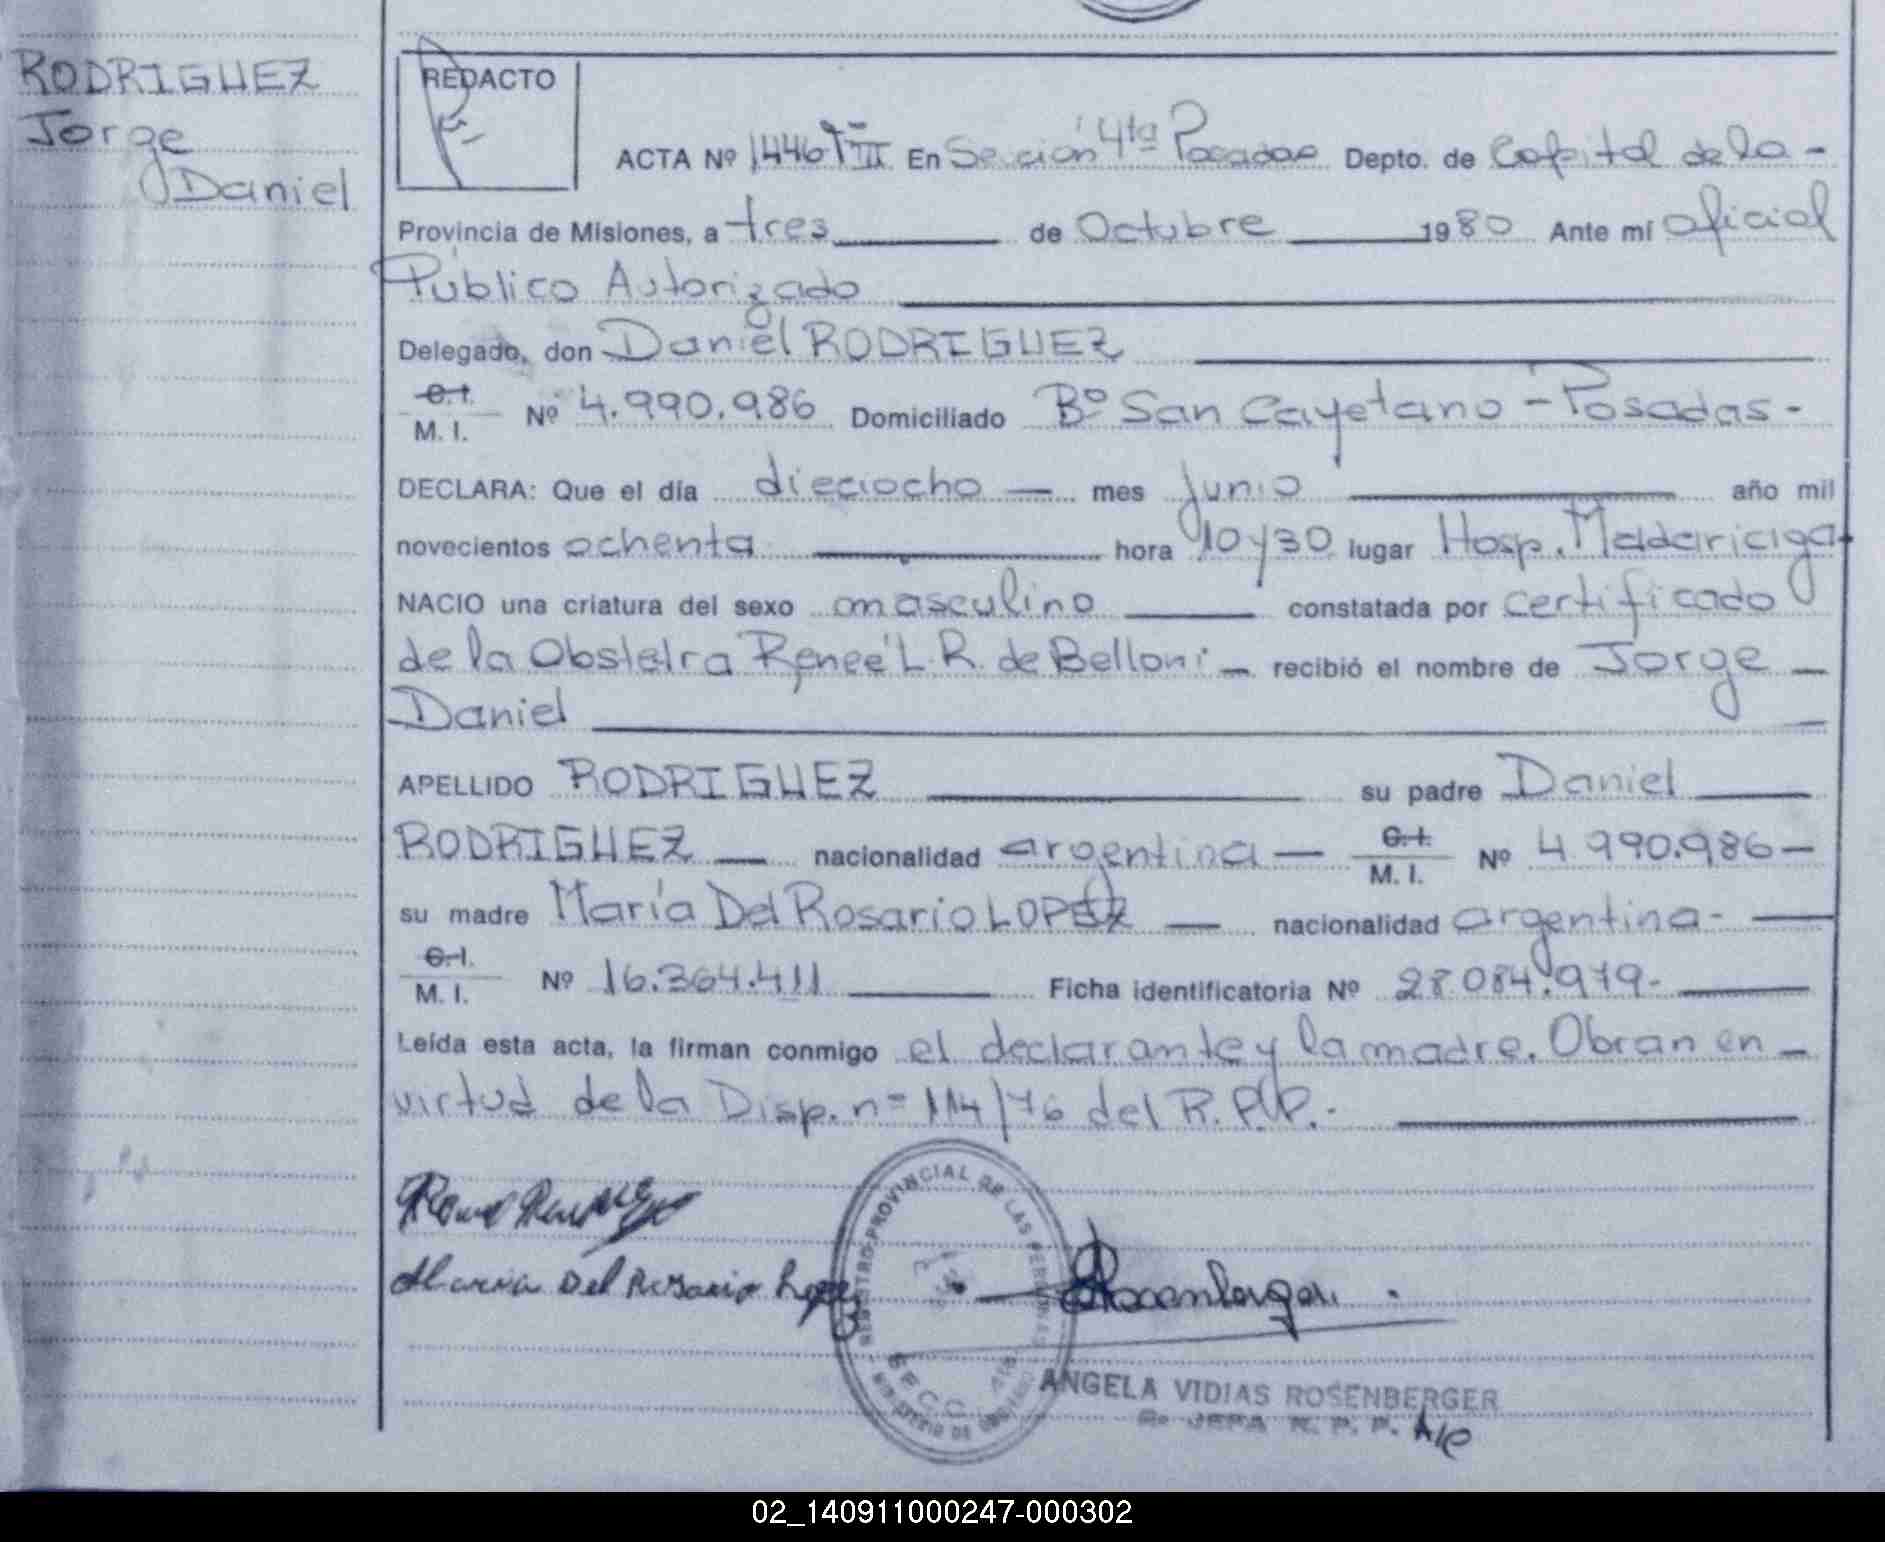 RODRIGUEZ
Jorge
Daniel
REDACTO
ACTA Nº 1446 Tº III En Sección 4ta Posadas Depto. de Capital de la -
Provincia de Misiones, a tres de Octubre 1980 Ante mí Oficial
Público Autorizado
Delegado, don Daniel RODRIGUEZ
C.I.
M. I. Nº 4.990.986 Domiciliado Bº San Cayetano - Posadas -
DECLARA: Que el día dieciocho mes junio año mil
novecientos ochenta hora 10 y 30 lugar Hosp. Madariaga
NACIO una criatura del sexo masculino constatada por certificado
de la Obstetra Reneé L. R. de Belloni - recibió el nombre de Jorge
Daniel
APELLIDO RODRIGUEZ su padre Daniel
RODRIGUEZ nacionalidad argentina C.I.
M. I. Nº 4.990.986
su madre María Del Rosario LOPEZ nacionalidad argentina-
C.I.
M. I. Nº 16.364.411 Ficha identificatoria Nº 28.084.979.
Leída esta acta, la firman conmigo el declarante y la madre. Obran en
virtud de la Disp. nº 114/76 del R.P.P.-
Maria Del Rosario Lopez
REGISTRO PROVINCIAL DE LAS PERSONAS
SECC. 4ta
MINISTERIO DE GOBIERNO
ANGELA VIDIAS ROSENBERGER
JEFA R. P. P. A/C
02_140911000247-000302